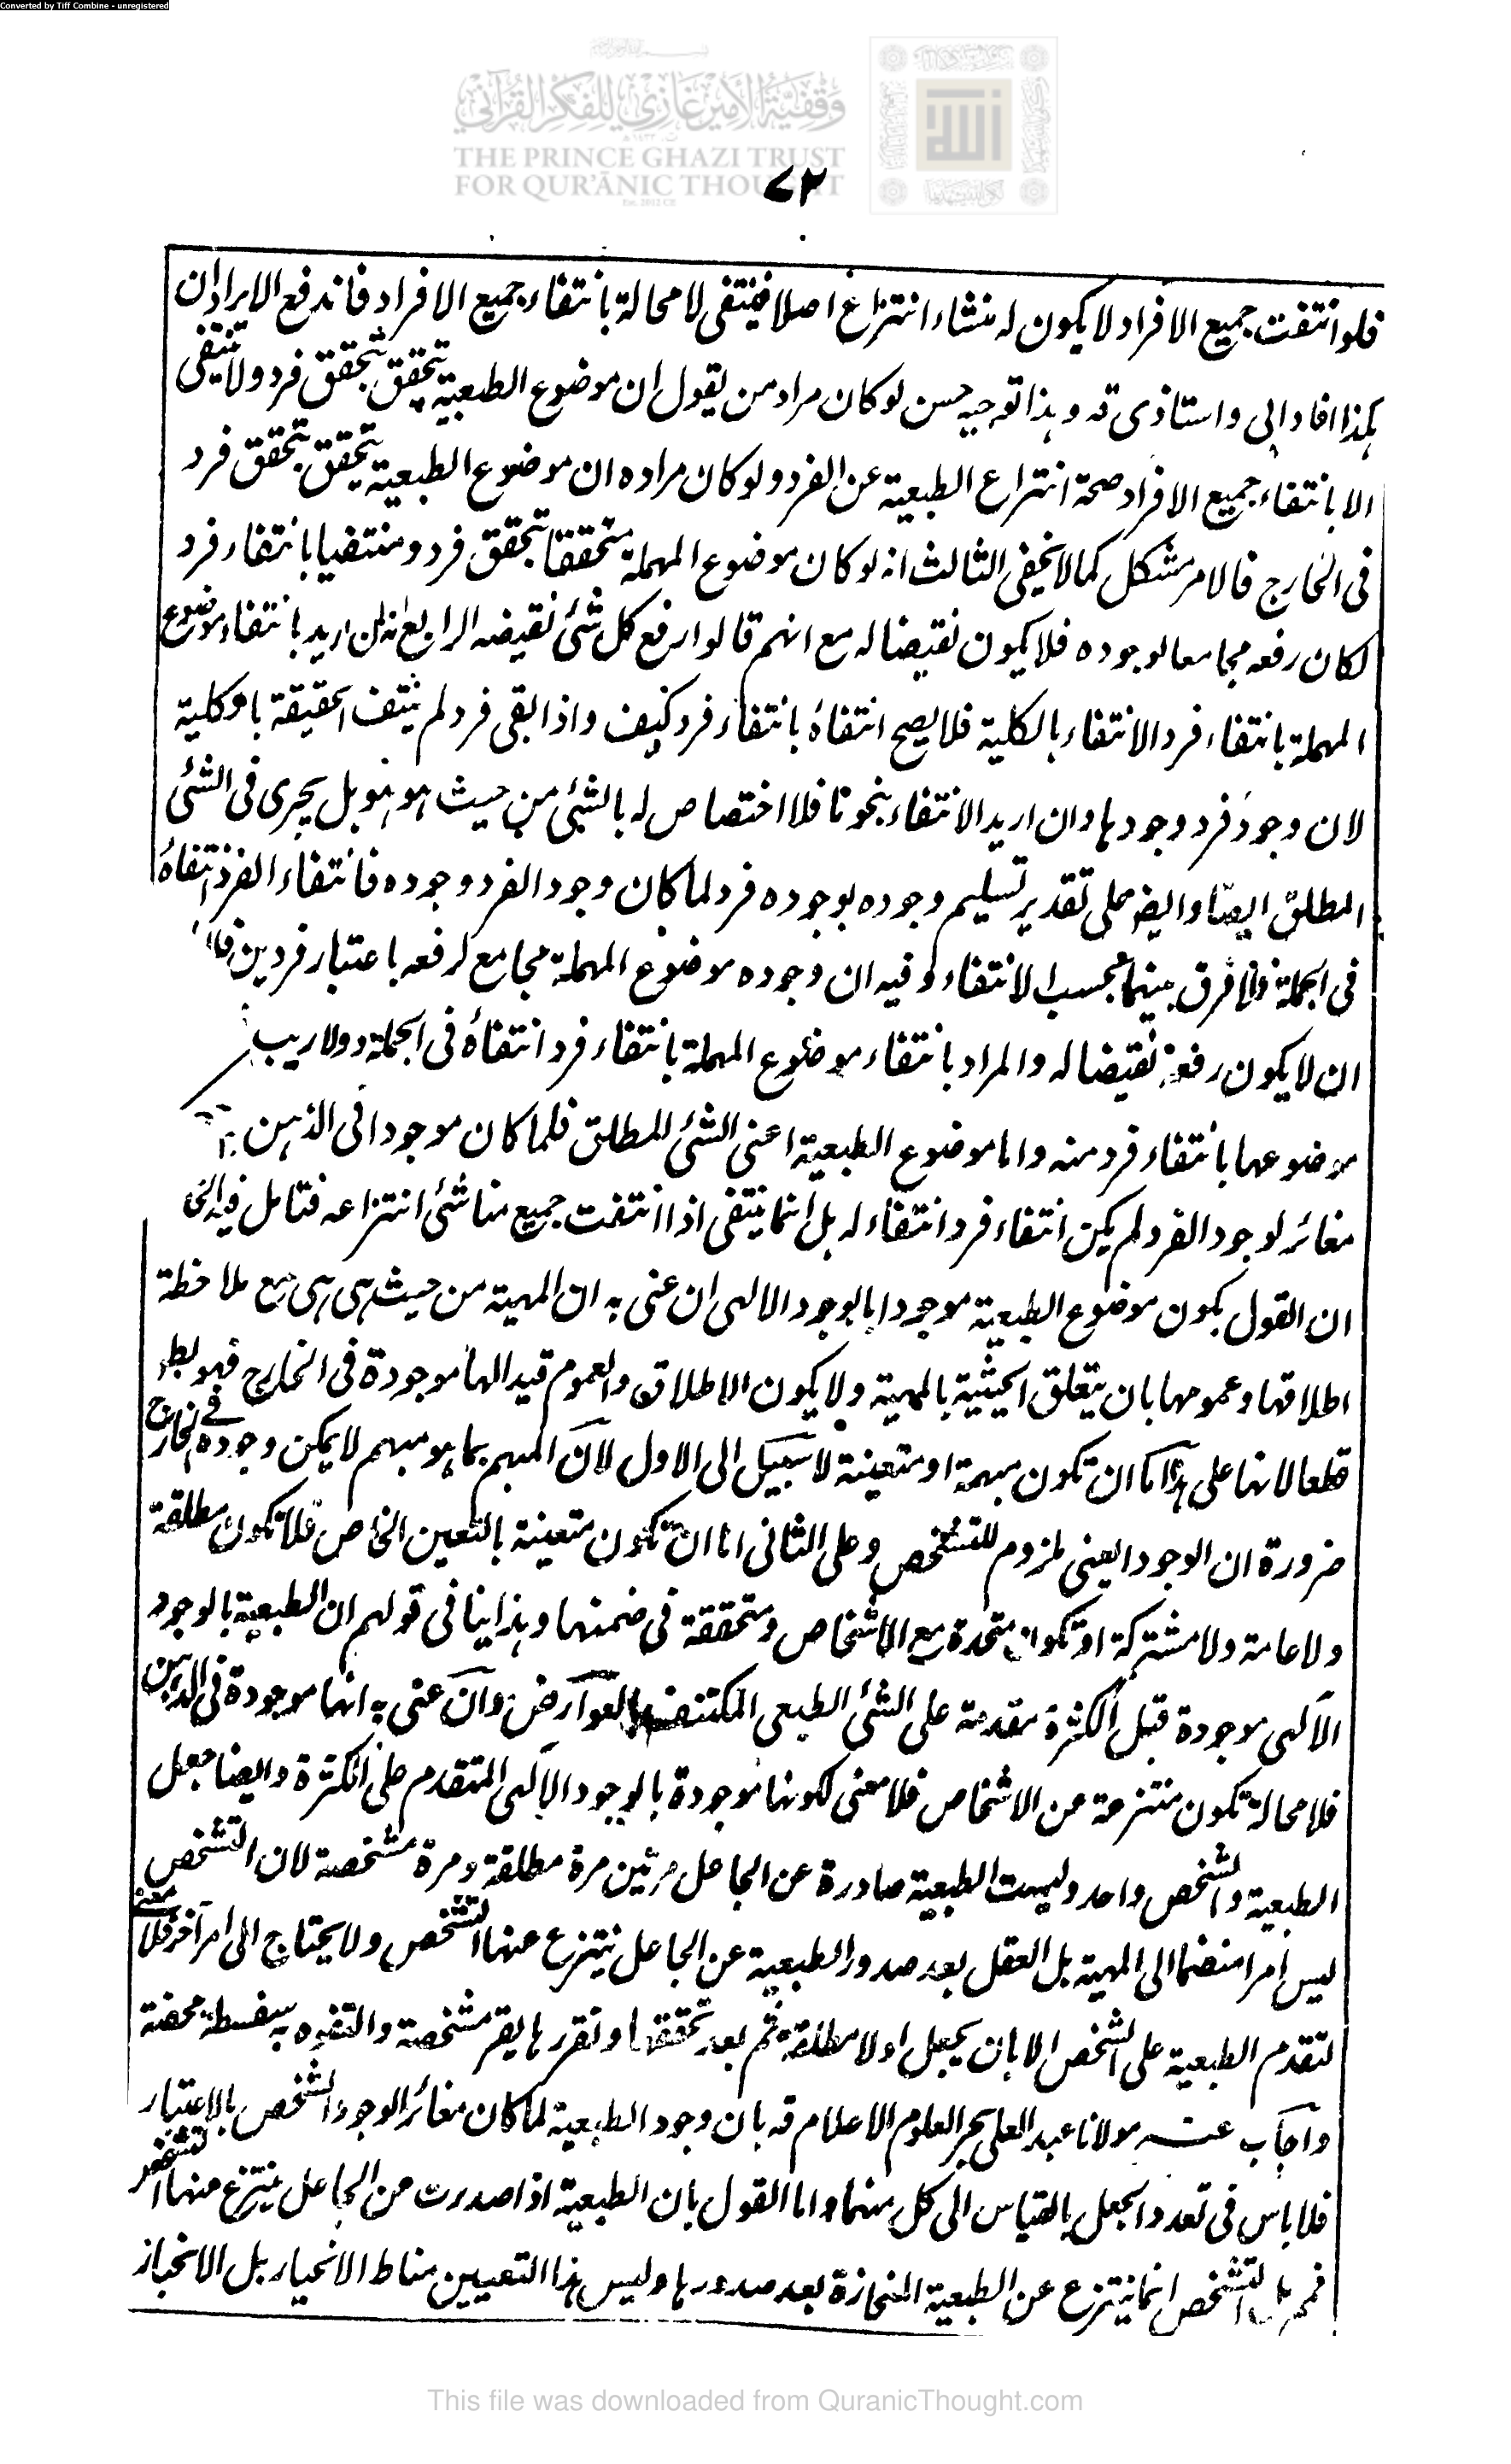 Converted by Tiff Combine - unregistered
وقفية الأمير غازي للفكر القرآني
THE PRINCE GHAZI TRUST
FOR QUR'ĀNIC THOUGHT
Est. 2012 CE
٧٢
فلو انتفت جميع الافراد لا يكون له منشاء انتزاع اصلا فينتفى لا محالة بانتفاء جميع الافراد فاندفع الايرادان
هكذا افاد ابى واستاذى قه وهذا توجيه حسن لو كان مراد من يقول ان موضوع الطبعية يتحقق بتحقق فرد ولا ينتفى
الا بانتفاء جميع الافراد صحة انتزاع الطبعية عن الفرد ولو كان مراده ان موضوع الطبعية يتحقق بتحقق فرد
فى الخارج فالامر مشكل كما لا يخفى الثالث انه لو كان موضوع المهملة متحققا بتحقق فرد ومنتفيا بانتفاء فرد
لكان رفعه مجامعا لوجوده فلا يكون نقيضا له مع انهم قالوا رفع كل شئ نقيضه الرابع انه ان اريد بانتفاء موضوع
المهملة بانتفاء فرد الانتفاء بالكلية فلا يصح انتفاؤه بانتفاء فرد كيف واذا بقى فرد لم ينتف الحقيقة بالكلية
لان وجود فرد وجودها وان اريد الانتفاء بنحو ما فلا اختصاص له بالشئ من حيث هو هو بل يجرى فى الشئ
المطلق ايضا وايضا على تقدير تسليم وجوده بوجوده فرد لما كان وجود الفرد وجوده فانتفاء الفرد انتفاؤه
فى الجملة فلا فرق بينهما بحسب الانتفاء وفيه ان وجوده موضوع المهملة مجامع لرفعه باعتبار فردين
ان لا يكون رفعه نقيضا له والمراد بانتفاء موضوع المهملة بانتفاء فرد انتفاؤه فى الجملة ولا ريب
موضوعها بانتفاء فرد منه واما موضوع الطبعية اعنى الشئ المطلق فلما كان موجودا فى الذهن
مغائر لوجود الفرد لم يكن انتفاء فرد انتفاء له بل انما ينتفى اذا انتفت جميع مناشئ انتزاعه فتامل فيه
ان القول بكون موضوع الطبعية موجودا بالوجود الالهى ان عنى به ان المهية من حيث هى هى مع ملاحظة
اطلاقها وعمومها بان يتعلق الحيثية بالمهية ولا يكون الاطلاق والعموم قيدا لها موجودة فى الخارج فهو بط
قطعا لانها على هذا اما ان تكون مبهمة او متعينة لا سبيل الى الاول لان المبهم بما هو مبهم لا يمكن وجوده فى الخارج
ضرورة ان الوجود العينى ملزوم للتشخص وعلى الثانى اما ان تكون متعينة بالتعين الخاص فلا تكون مطلقة
ولا عامة ولا مشتركة او تكون متحدة مع الاشخاص ومتحققة فى ضمنها وهذا ينافى قولهم ان الطبعية بالوجود
الالهى موجودة قبل الكثرة مقدمة على الشئ الطبعى المكتنف بالعوارض وان عنى به انها موجودة فى الذهن
فلا محالة تكون منتزعة عن الاشخاص فلا معنى لكونها موجودة بالوجود الالهى المتقدم على الكثرة وايضا جعل
الطبعية والشخص واحد وليست الطبعية صادرة عن الجاعل مرتين مرة مطلقة ومرة مشخصة لان التشخص
ليس امرا منضما الى المهية بل العقل بعد صدور الطبعية عن الجاعل ينتزع عنها التشخص ولا يحتاج الى امر آخر فلا معنى
لتقدم الطبعية على الشخص الا بان يجعل اولا مطلقة ثم بعد تحققها وتقررها يقر مشخصة والتفوه به سفسطة محضة
واجاب عنه مولانا عبد العلى بحر العلوم الاعلام قه بان وجود الطبعية لما كان مغائر الوجود الشخص بالاعتبار
فلا باس فى تعدد الجعل بالقياس الى كل منهما واما القول بان الطبعية اذا صدرت من الجاعل ينتزع منها التشخص
بل التشخص انما ينتزع عن الطبعية المنحازة بعد صدورها وليس هذا التعيين مناط الانحياز بل الانحياز
This file was downloaded from QuranicThought.com